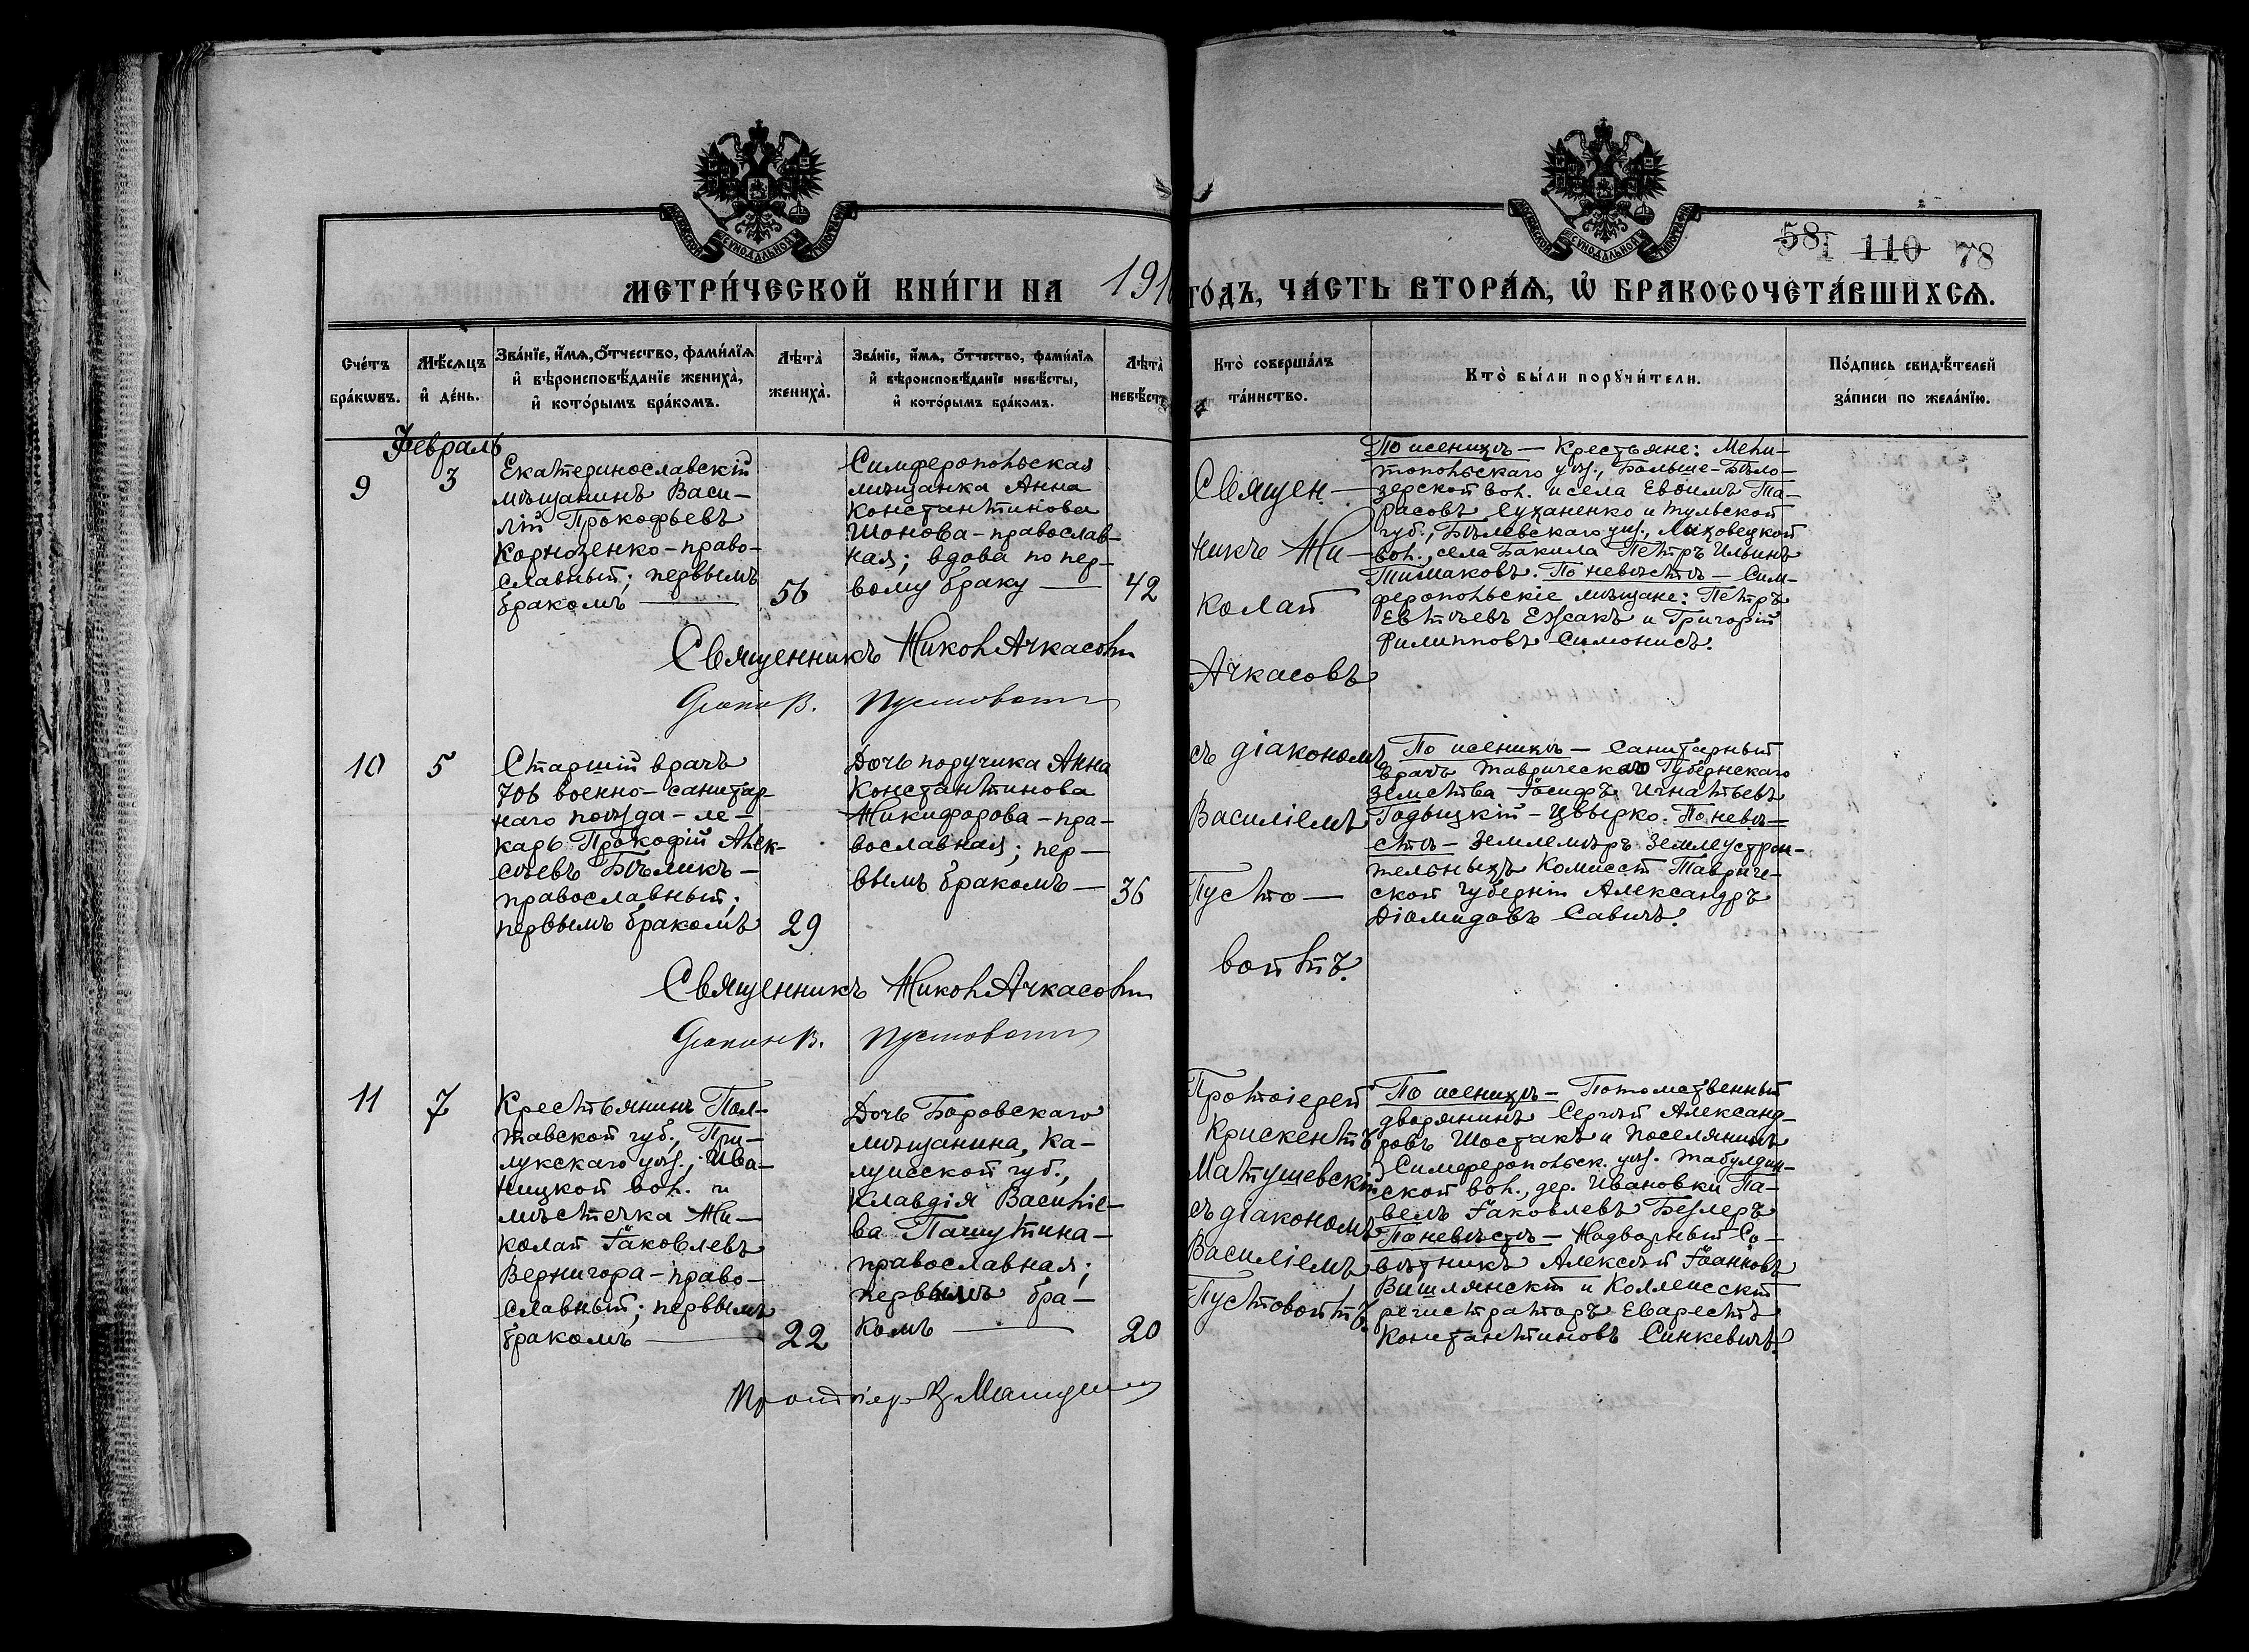 58 110 78
МЕТРИ́ЧЕСКОЙ КНИ́ГИ НА 191 ГО́ДЪ, ЧА́СТЬ ВТОРА́Я, Ѡ҆ БРАКОСОЧЕТА́ВШИХСЯ.
Сче́тъ бра́кѡвъ.
Мѣ́сяцъ и҆ де́нь.
Зва́нїе, и҆́мя, ѻ҆́тчество, фами́лїя и҆ вѣроисповѣ́данїе жениха̀, и҆ кото́рымъ бра́комъ.
Лѣта̀ жениха̀.
Зва́нїе, и҆́мя, ѻ҆́тчество, фами́лїя и҆ вѣроисповѣ́данїе невѣ́сты, и҆ кото́рымъ бра́комъ.
Лѣта̀ невѣ́ст
Кто̀ соверша́лъ та́инство.
Кто̀ бы́ли порꙋчи́тели.
По́дпись свидѣ́телей за́писи по жела́нїю.
Февраль
9
3
Екатеринославскій
мѣщанинъ Васи-
лій Прокофьевъ
Корнозенко - право-
славный; первымъ
бракомъ —
56
Симферопольская
мѣщанка Анна
Константинова
Шонова - православ-
ная; вдова по пер-
вому браку —
42
Священ-
никъ Ни-
колай
Ачкасовъ
съ діакономъ
Василіемъ
Пусто-
войтъ.
По женихѣ - Крестьяне: Мели-
топольскаго уѣз., Больше-Бѣло-
зерской вол. и села Евѳимъ Та-
расовъ Суханенко и Тульской
губ., Бѣлевскаго уѣз., Маховецкой
вол., села Бакина Петръ Ильинъ
Тимаковъ. По невѣстѣ - Сим-
феропольскіе мѣщане: Петръ
Евтѣевъ Ежакъ и Григорій
Филипповъ Симонисъ.
Священникъ Никол Ачкасовъ
Діаконъ В. Пустовойтъ
10
5
Старшій врачъ
706 военно-санитар-
наго поѣзда - ле-
карь Прокофій Алек-
сѣевъ Бѣликъ -
православный;
первымъ бракомъ
29
Дочь поручика Анна
Константинова
Никифорова - пра-
вославная; пер-
вымъ бракомъ -
36
По женихѣ - Санитарный
врачъ Таврическаго Губернскаго
земства Іосифъ Игнатьевъ
Годыцкій - Цвирко. По невѣ-
стѣ - Землемѣръ Землеустрои-
тельныхъ Комиссій Тавриче-
ской губерніи Александръ
Діомидовъ Савичъ.
Священникъ Никол Ачкасовъ
Діаконъ В. Пустовойтъ
11
7
Крестьянинъ Пол-
тавской губ., При-
лукскаго уѣз., Ива-
ницкой вол. и
мѣстечка Ни-
колай Іаковлевъ
Вернигора - право-
славный; первымъ
бракомъ —
22
Дочь Боровскаго
мѣщанина, Ка-
лужской губ.,
Клавдія Василіе-
ва Пашутина -
православная;
первымъ бра-
комъ —
20
Протоіерей
Крискентъ
Матушевскій
съ діакономъ
Василіемъ
Пустовойтъ.
По женихѣ - Потомственный
дворянинъ Сергѣй Александ-
ровъ Шостакъ и поселянинъ
Симферопольск. уѣз. Табулдин-
ской вол., дер. Ивановки Па-
велъ Іаковлевъ Безлеръ
По невѣстѣ - Надворный Со-
вѣтникъ Алексѣй Іоанновъ
Вишлянскій и Коллежскій
регистраторъ Еварестъ
Константиновъ Синкевичъ.
Протоіер. К. Матушев